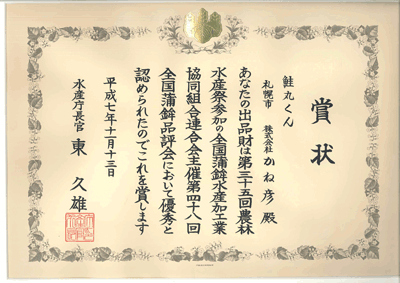 賞状
鮭丸くん
札幌市 株式会社 かね彦 殿
あなたの出品財は第三十五回農林
水産祭参加の全国蒲鉾水産加工業
協同組合連合会主催第四十八回
全国蒲鉾品評会において優秀と
認められたのでこれを賞します
平成七年十一月十三日
水産庁長官 東 久雄